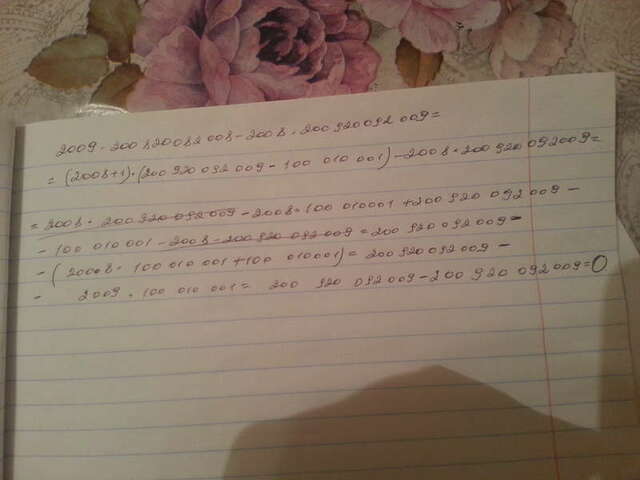 2009 · 200820082008 - 2008 · 200920092009 =
= (2008+1) · (200 920 092 009 - 100 010 001) - 2008 · 200 920 092009 =
= 2008 · 200 920 092 009 - 2008 · 100 010001 + 200 920 092 009 -
- 100 010 001 - 2008 - 200 920 092 009 = 200 920 092009 -
- (2008 · 100 010 001 + 100 010001) = 200 920 092009 -
- 2009 · 100 010 001 = 200 920 092 009 - 200 920 092 009 = 0